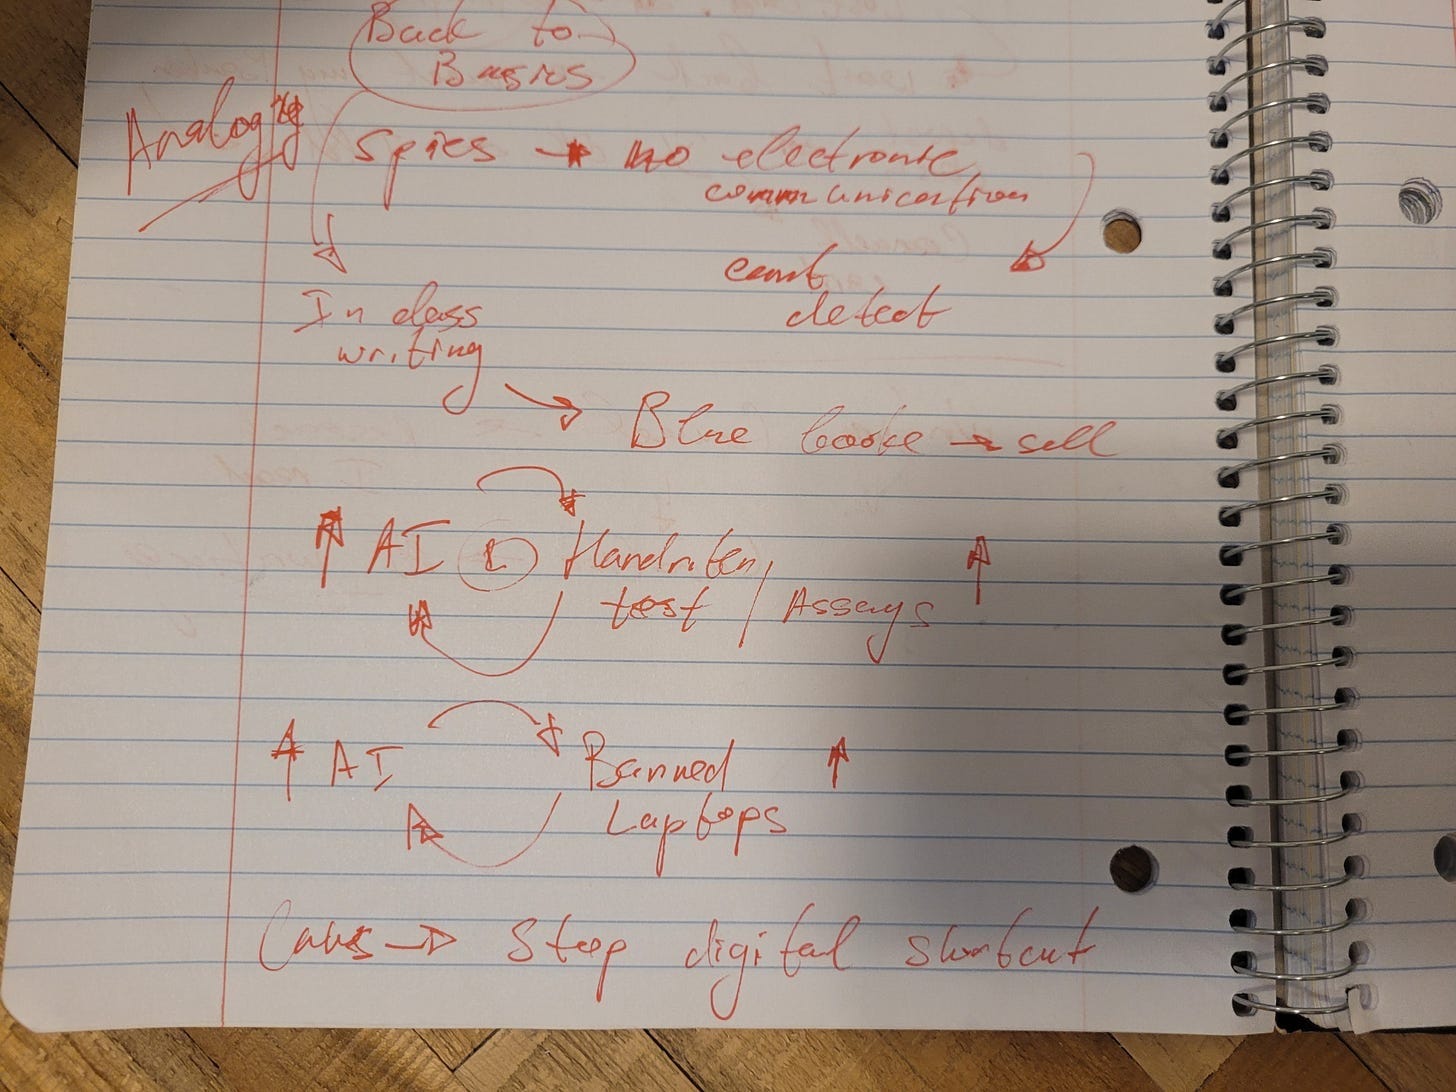 Back to
Basics
Analog
Spies → no electronic
communication
cant
detect
In class
writing
Blue books → sell
↑ AI Handriten ↑
test / Assays
↑ AI Banned ↑
Laptops
→ Stop digital shortcut